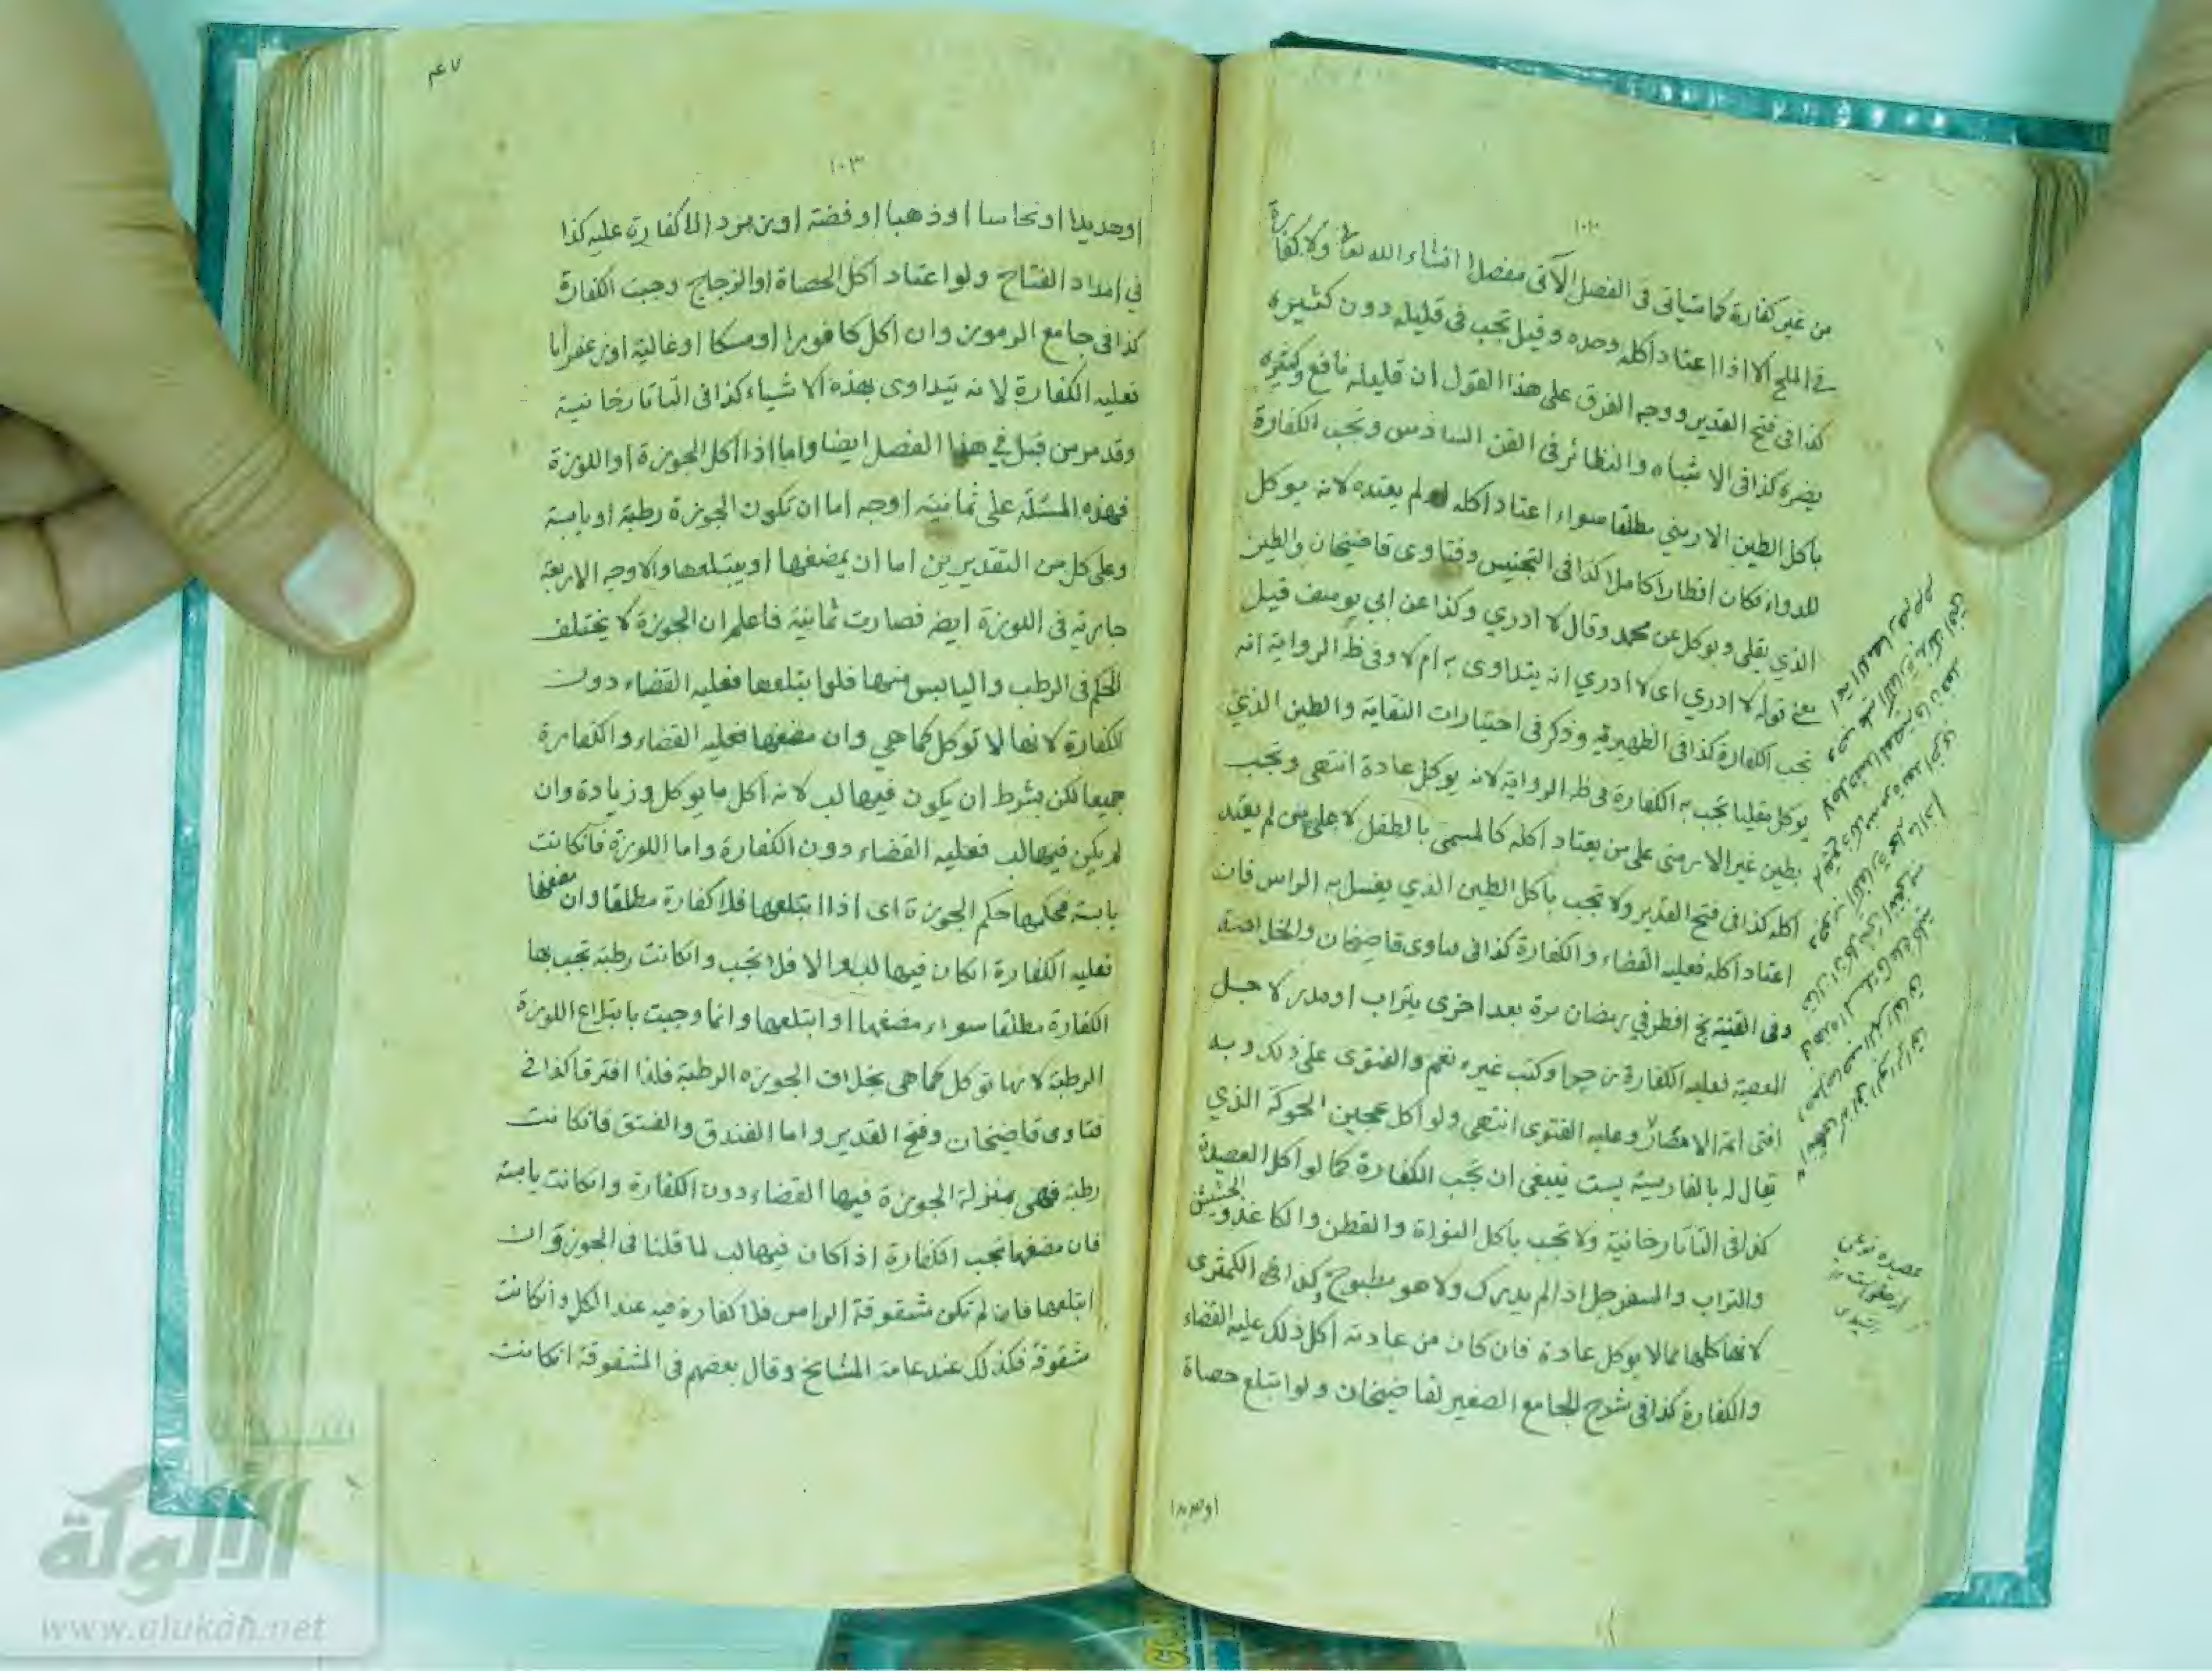 ١٠٢
من غير كفارة كما سيأتى فى الفصل الآتى مفصلا انشاء الله تعا ولا كفارة
فى الملح الا اذا اعتاد اكله وحده وقيل تجب فى قليله دون كثيره
كذا فى فتح القدير ووجه الفرق على هذا القول ان قليله نافع وكثيره
يضره كذا فى الاشباه والنظائر فى الفن السادس وتجب الكفارة
باكل الطين الارمني مطلقا سواء اعتاد اكله او لم يعتده لانه يوكل
للدواء فكان افطارا كاملا كذا فى التجنيس وفتاوى قاضيخان والطين
الذي يقلى ويوكل عن محمد وقال لا ادري وكذا عن ابي يوسف قيل
معنى قوله لا ادري اى لا ادري انه يتداوى به ام لا وفى ظ الرواية انه
تجب الكفارة كذا فى الظهيرية وذكر فى اختيارات النقاية والطين الذي
يوكل بقليا تجب به الكفارة فى ظ الرواية لانه يوكل عادة انتهى وتجب
بطين غير الارمنى على من يعتاد اكله كالمسمى بالطفل لا على من لم يعتد
اكله كذا فى فتح القدير ولا تجب باكل الطين الذي يغسل به الراس فان
اعتاد اكله فعليه القضاء والكفارة كذا فى فتاوى قاضيخان والخلاصة
وفى القنية نج افطر في رمضان مرة بعد اخرى بتراب او مدر لاجل
المعصية فعليه الكفارة زجرا وكتب غيره نعم والفتوى على ذلك وبه
افتى ائمة الامصار وعليه الفتوى انتهى ولو اكل عجين الجوكة الذي
يقال له بالفارسية بست ينبغى ان تجب الكفارة كما لو اكل العصيدة
كذا فى التاتارخانية ولا تجب باكل النواة والقطن والكاغذ والحشيش
والتراب والسفرجل اذ لم يدرك ولا هو مطبوخ وكذا فى الكمثرى
لانها كلها مما لا يوكل عادة فان كان من عادته اكل ذلك عليه القضاء
والكفارة كذا فى شرح الجامع الصغير لقاضيخان ولو ابتلع حصاة
اوحديدا
عصيده نوعي
از حلويات
١٠٣
٤٧
اوحديدا او نحاسا او ذهبا او فضة او زمرد الا كفارة عليه كذا
في امداد الفتاح ولو اعتاد اكل الحصاة او الزجاج وجبت الكفارة
كذا فى جامع الرموز وان اكل كافورا او مسكا او غالية او زعفرانا
فعليه الكفارة لانه يتداوى بهذه الاشياء كذا فى التاتارخانية
وقد مر من قبل في هذا الفصل ايضا واما اذا اكل الجوزة او اللوزة
فهذه المسئلة على ثمانية اوجه اما ان تكون الجوزة رطبة او يابسة
وعلى كل من التقديرين اما ان يمضغها او يبتلعها والاوجه الاربعة
جارية فى اللوزة ايضا فصارت ثمانية فاعلم ان الجوزة لا يختلف
الحكم فى الرطب واليابس منها فلو ابتلعها فعليه القضاء دون
الكفارة لانها لا توكل كما هي وان مضغها فعليه القضاء والكفارة
جميعا لكن بشرط ان يكون فيها لب لانه اكل ما يوكل وزيادة وان
لم يكن فيها لب فعليه القضاء دون الكفارة واما اللوزة فانكانت
يابسة فحكمها حكم الجوزة اى اذا ابتلعها فلا كفارة مطلقا وان مضغها
فعليه الكفارة انكان فيها لب والا فلا تجب وانكانت رطبة تجب بها
الكفارة مطلقا سواء مضغها او ابتلعها وانما وجبت بابتلاع اللوزة
الرطبة لانها توكل كما هى بخلاف الجوزة الرطبة فلذا افترقا كذا فى
فتاوى قاضيخان وفتح القدير واما الفندق والفستق فانكانت
رطبة فهى بمنزلة الجوزة فيها القضاء دون الكفارة وانكانت يابسة
فان مضغها تجب الكفارة اذا كان فيها لب لما قلنا فى الجوزة وان
ابتلعها فان لم تكن مشقوقة الراس فلا كفارة فيه عند الكل وانكانت
مشقوقة فكذلك عند عامة المشايخ وقال بعضهم فى المشقوقة انكانت
الألوكة
www.alukah.net